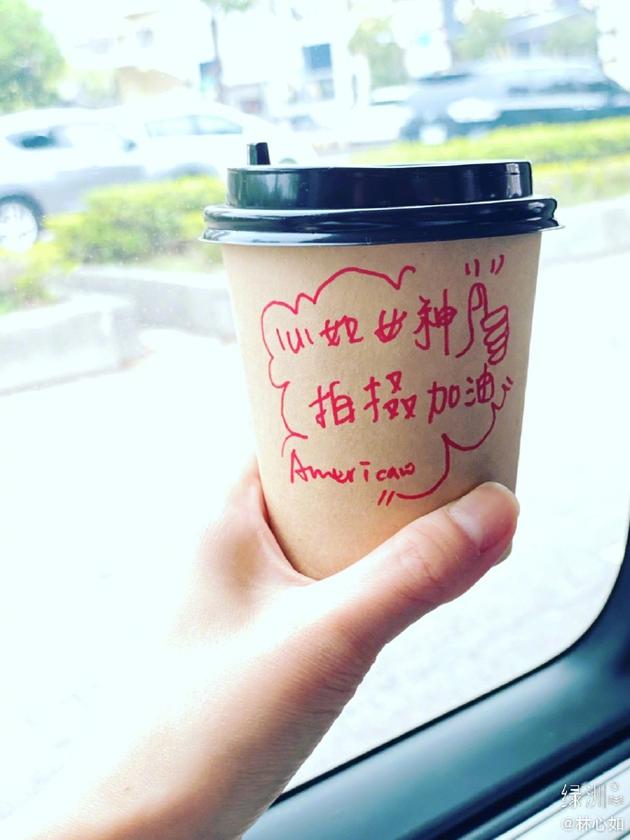 心如女神
拍摄加油
Americano
绿洲
@林心如